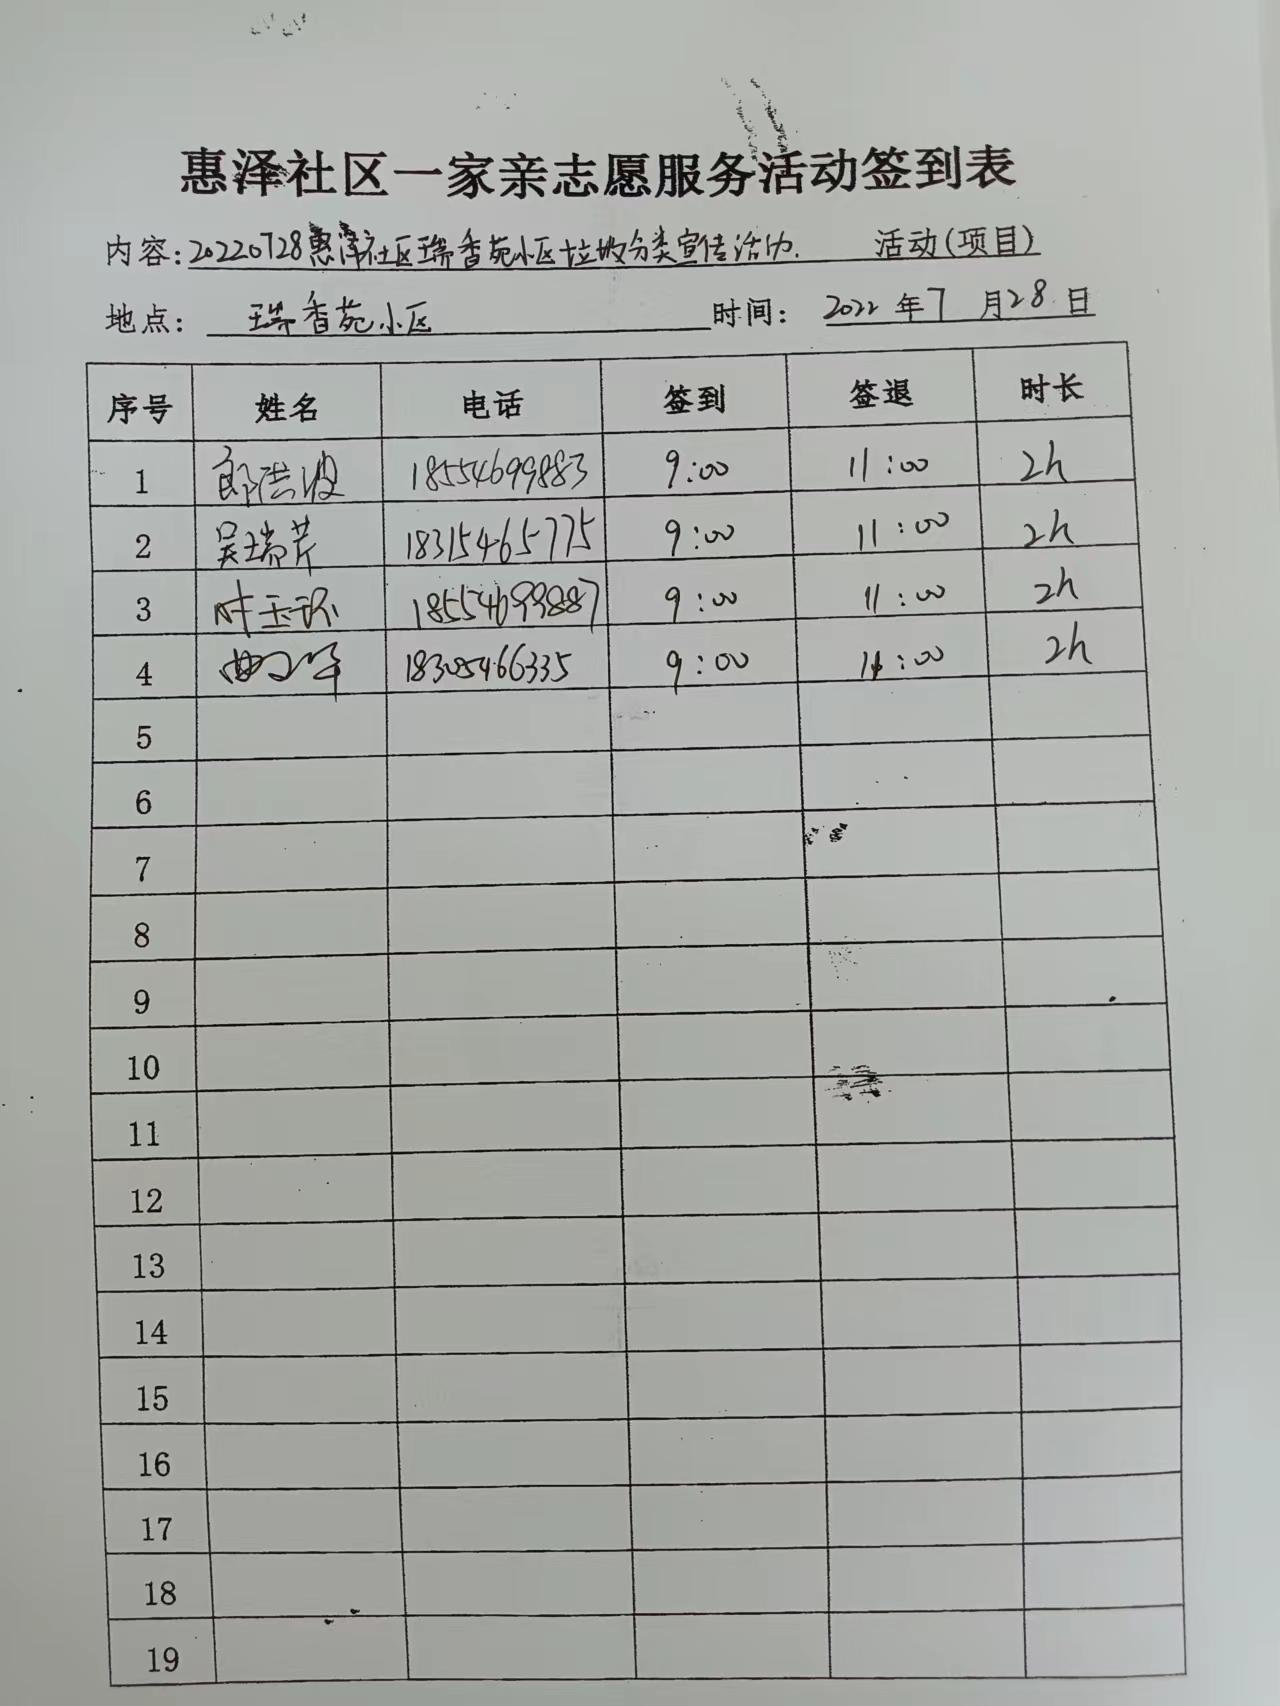 惠泽社区一家亲志愿服务活动签到表
内容:20220728惠泽社区瑞香苑小区垃圾分类宣传活动. 活动(项目)
地点: 瑞香苑小区 时间: 2022 年 7 月 28 日
序号 姓名 电话 签到 签退 时长
1 郎洪波 18554699883 9:00 11:00 2h
2 吴瑞芹 18315465775 9:00 11:00 2h
3 时玉环 18554699887 9:00 11:00 2h
4 18305466335 9:00 11:00 2h
5
6
7
8
9
10
11
12
13
14
15
16
17
18
19